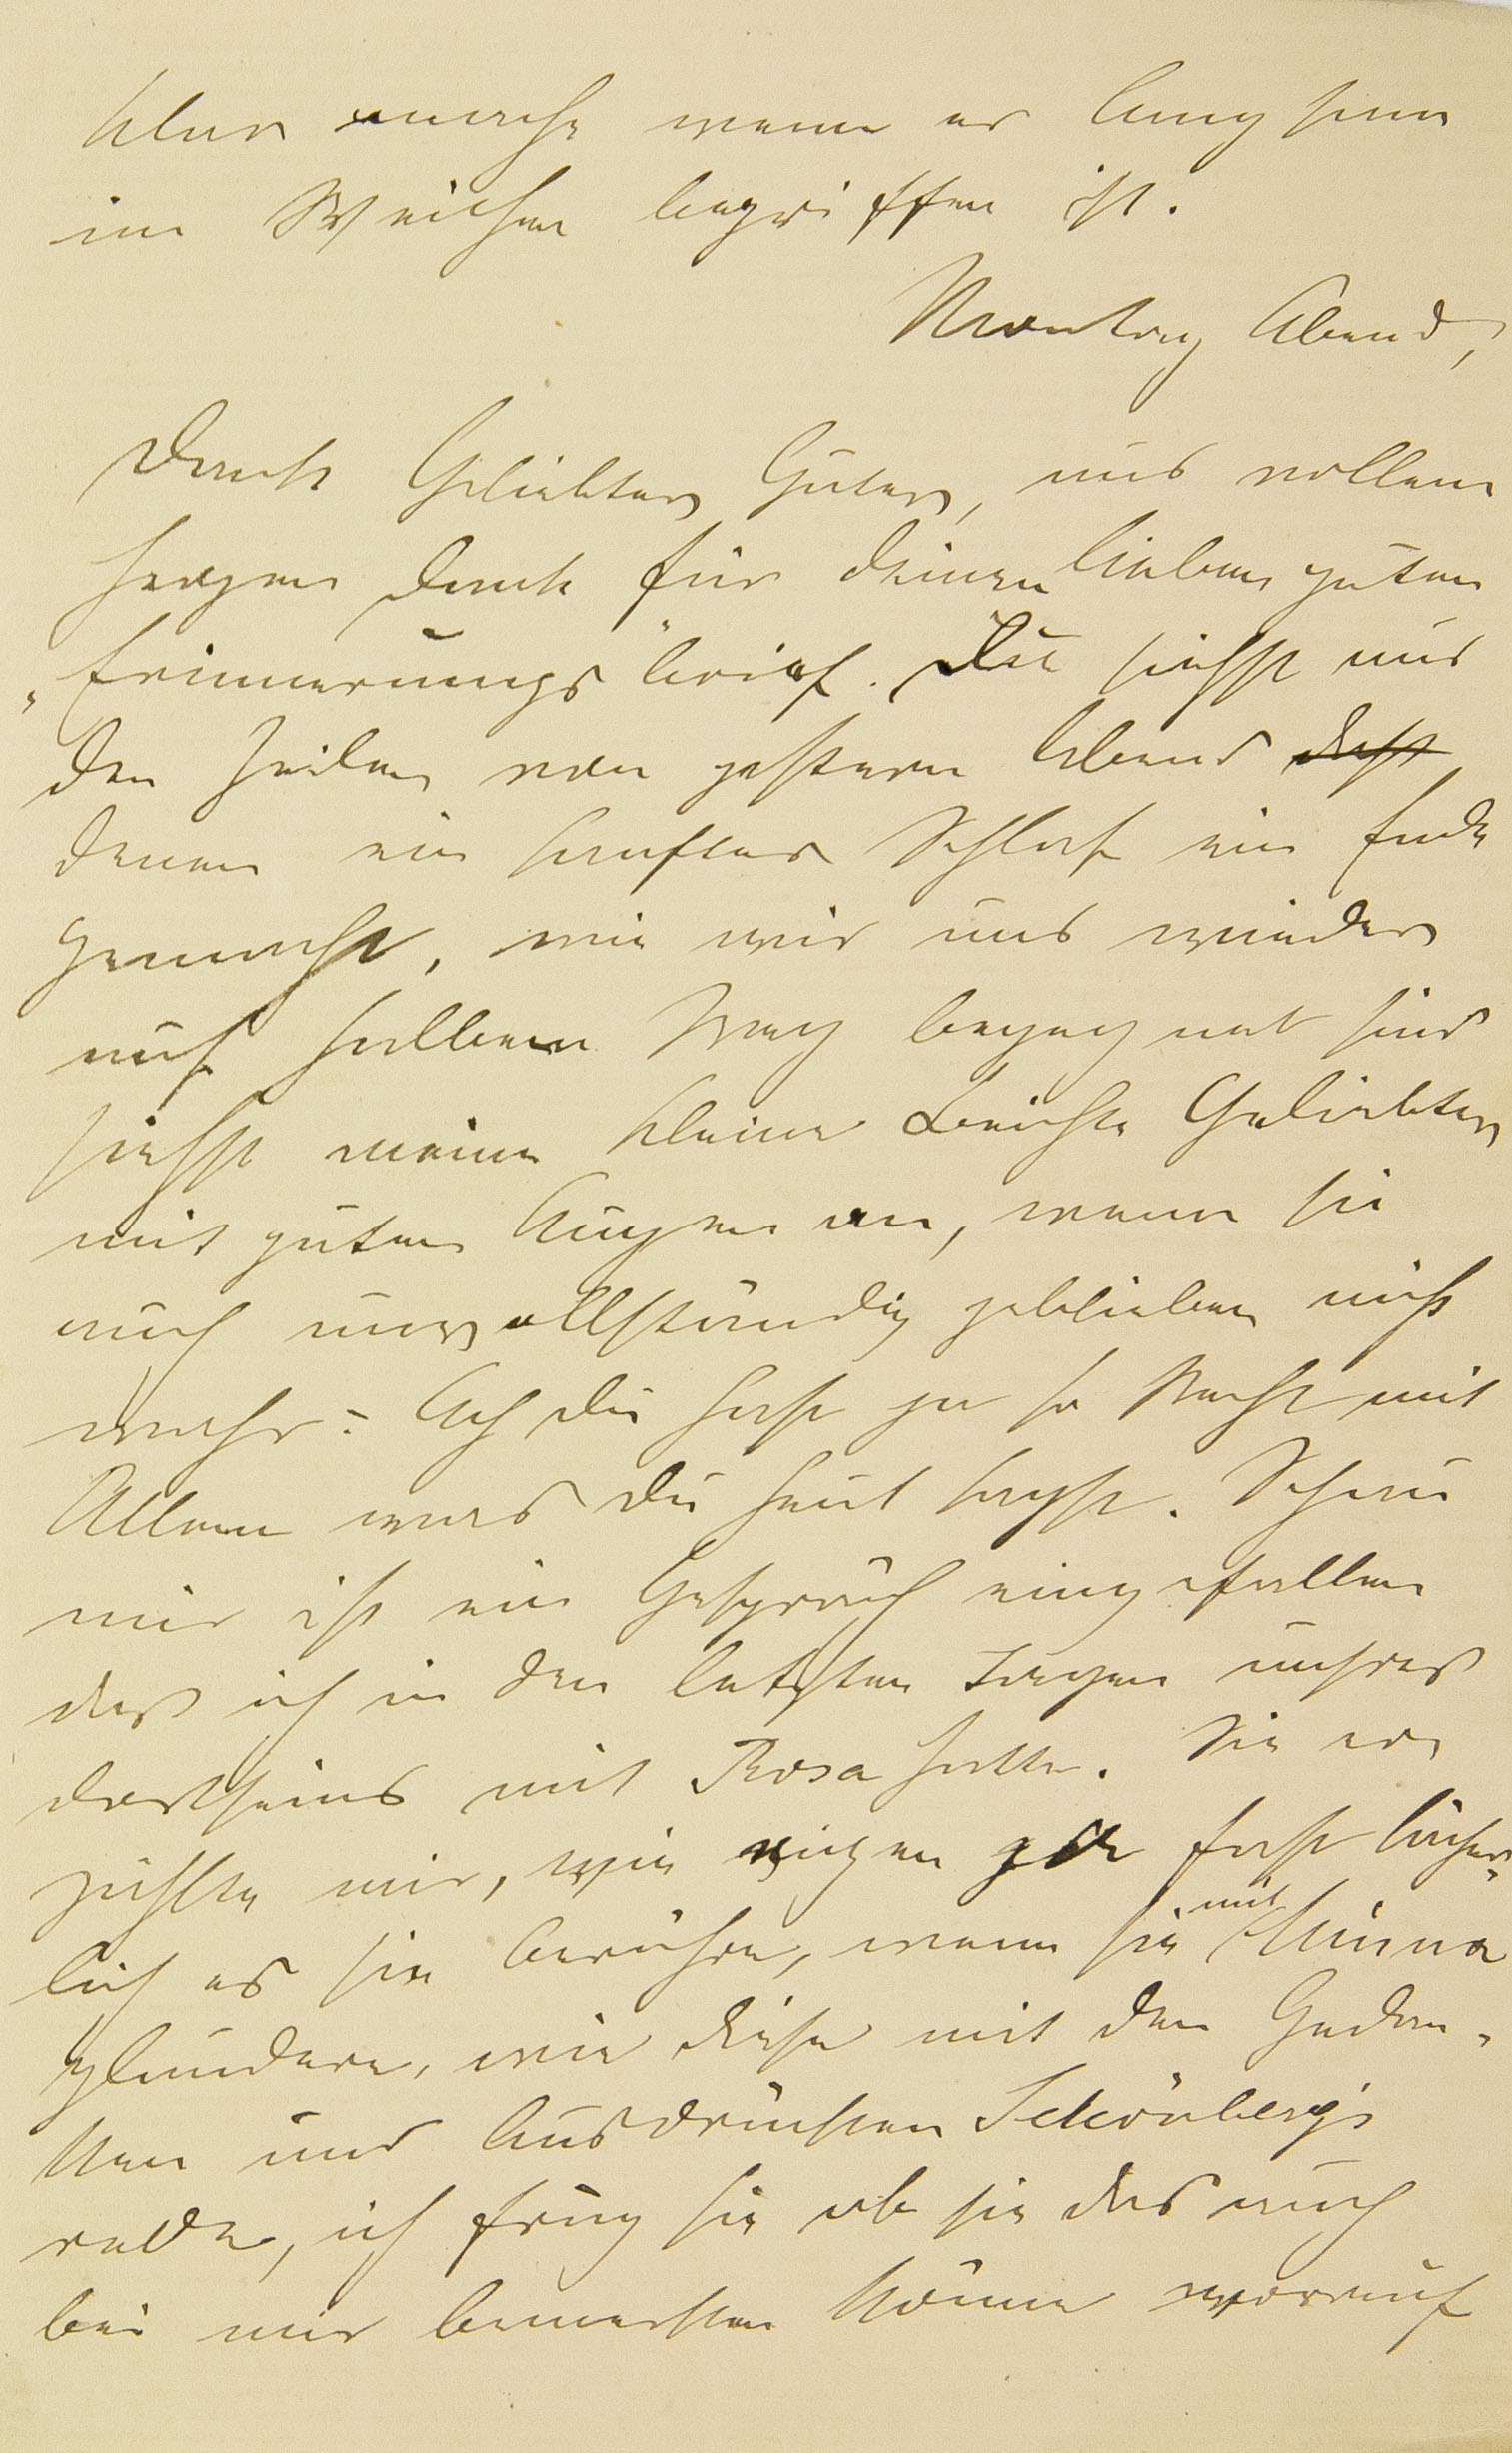 klar mache wenn er langsam
im Weichen begriffen ist.
Montag Abend,
Dank Geliebter Guter, aus vollem
Herzen Dank für deinen lieben guten
„Erinnerungs“brief. Du siehst aus
den Zeilen von gestern Abend daß
denen ein sanfter Schlaf ein Ende
gemacht, wie wir uns wieder
auf halbem Weg begegnet sind
siehst meine kleine Beichte Geliebter
mit guten Augen an, wenn sie
auch unvollständig geblieben nicht
wahr? Ach du hast ja so Recht mit
Allem was du heut sagst. Schau
mir ist ein Gespräch eingefallen
das ich in den letzten Tagen unsres
Dortseins mit Rosa hatte. Sie er
zählte mir, wie eigen ja fast lächer„
lich es sie berühre, wenn sie mit Minna
plaudere, wie diese mit den Gedan„
ken und Ausdrücken Schönberg's
rede, ich frug sie ob sie das auch
bei mir bemerken könne worauf